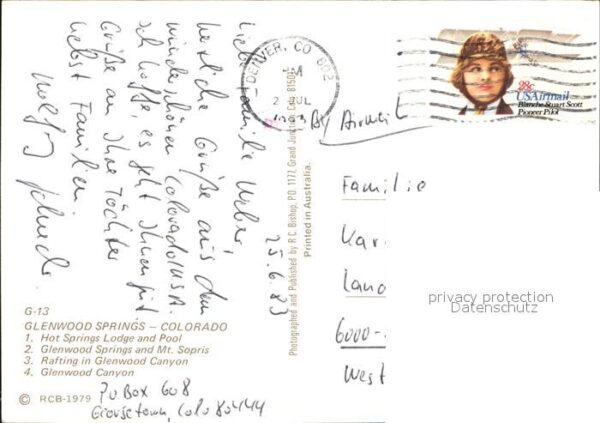 25.6.83
Liebe Familie Weber
herzliche Grüße aus dem
wunderschönen Colorado/USA.
Ich hoffe, es geht Ihnen gut
Grüße an Ihre Töchter
nebst Familien
G-13
GLENWOOD SPRINGS – COLORADO
1. Hot Springs Lodge and Pool
2. Glenwood Springs and Mt. Sopris
3. Rafting in Glenwood Canyon
4. Glenwood Canyon
© RCB-1979
PO Box 608
Georgetown, Colo 80444
Photographed and Published by R.C. Bishop, P.O. 1172, Grand Junction, Colo. 81501
Printed in Australia.
DENVER, CO 802
PM
2 JUL
28c
USAirmail
Blanche Stuart Scott
Pioneer Pilot
By Airmail
Familie
Kar
Land
6000-
West
privacy protection
Datenschutz